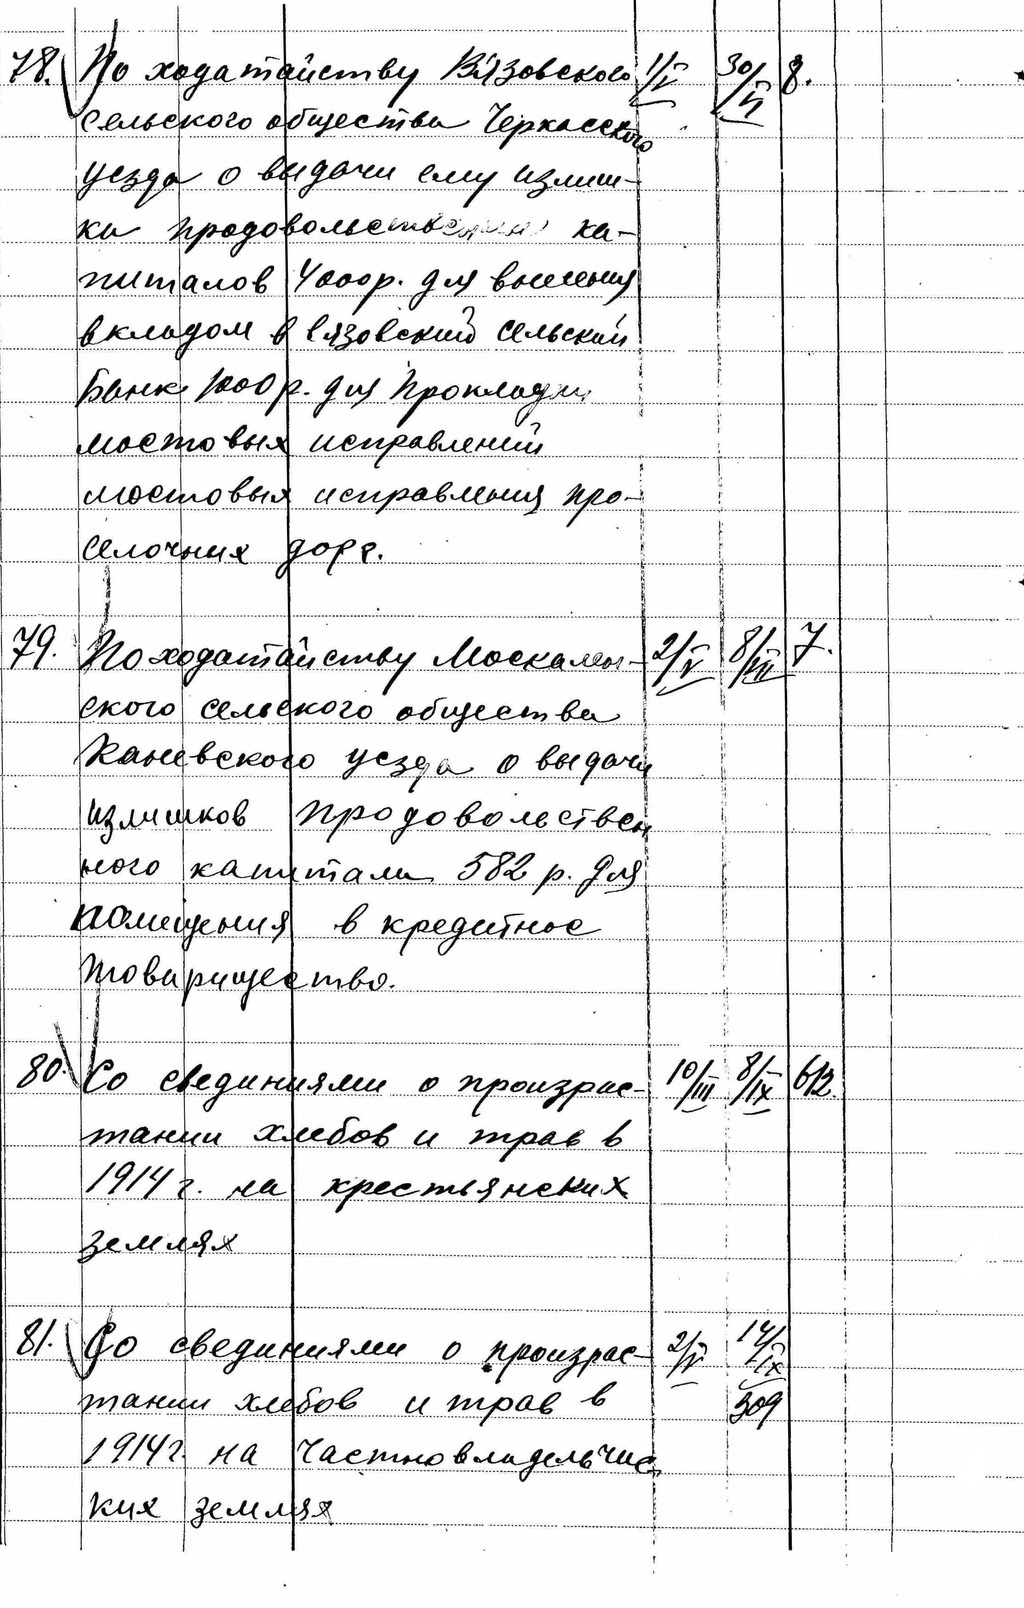 78. По ходатайству Вязовского 1/V 30/VI 8.
сельского общества Черкасского
уезда о выдачи ему излиш-
ка продовольственных ка-
питалов 4000р. для внесения
вкладом в Вязовский сельский
банк 1000 р. для прокладки
мостовых исправлений
мостовых исправления про-
селочных дорг.
79. По ходатайству Москален- 2/V 8/VII 7.
ского сельского общества
Каневского уезда о выдачи
излишков продовольствен
ного капитала 582 р. для
помещения в кредитное
товарищество.
80. Со свединиями о произрас- 10/III 8/IX 612.
тании хлебов и трав в
1914 г. на крестьянских
землях
81. Со свединиями о произрас- 2/V 14/IX
тании хлебов и трав в 309
1914 г. на частновладельчес
ких землях